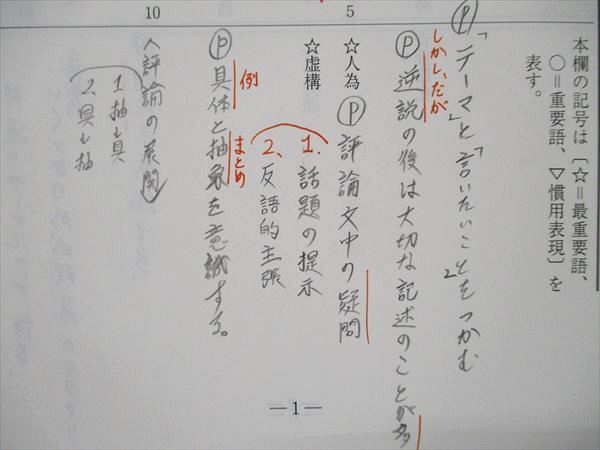 本欄の記号は〔☆=最重要語、
○=重要語、▽慣用表現〕を
表す。
Ⓟ「テーマ」と「言いたいこと」をつかむ
しかし、だが
Ⓟ逆説の後は大切な記述のことが多
5
☆人為
Ⓟ評論文中の疑問
☆虚構
1.話題の提示
2、反語的主張
例
まとめ
Ⓟ具体と抽象を意識する。
10
評論の展開
1.抽→具
2、具→抽
—1—